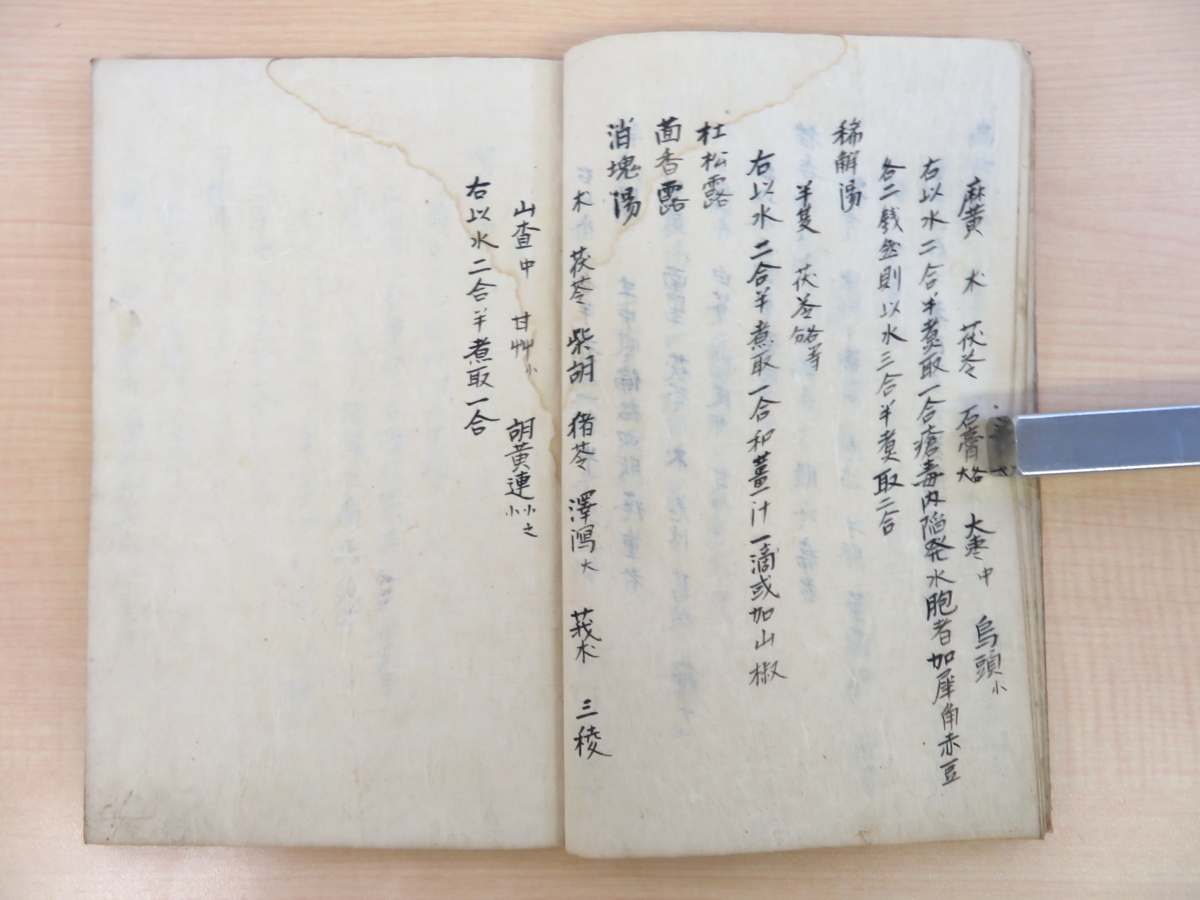 麻黄 朮 茯苓 石膏各大 大棗中 烏頭小
右以水二合半煮取一合瘡毒内陥発水胞者加犀角赤豆
各二銭然則以水三合半煮取二合
稀解湯
半夏 茯苓各等分
右以水二合半煮取一合和薑汁一滴或加山椒
杜松露
茴香露
消塊湯
木 茯苓 柴胡 猪苓 澤瀉大 莪朮 三稜
山査中 甘艸小 胡黄連小之
右以水二合半煮取一合